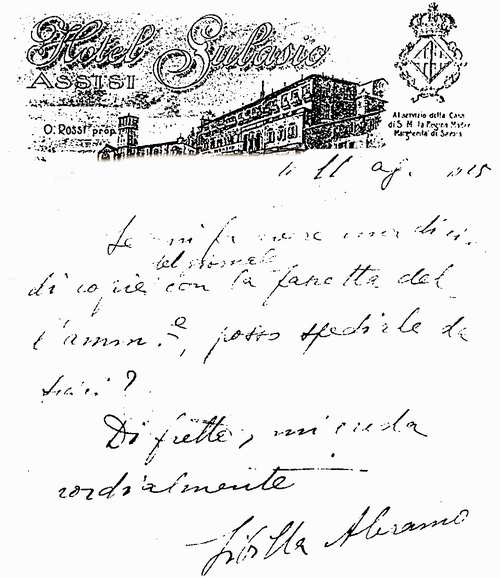 Hotel Subasio
ASSISI
O. Rossi prop.
Al servizio della Casa
di S. M. la Regina Madre
Margherita di Savoia
11 ag. 1915
Se mi fa avere una
del giornale
di copie con la fascetta del
l'ammne, posso spedirle da
qui?
Di fretta, mi creda
cordialmente
Sibilla Aleramo